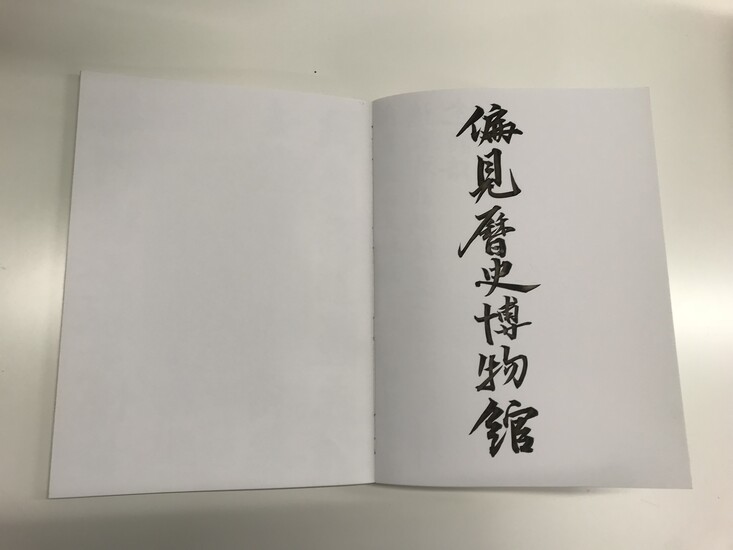 偏見曆史博物館